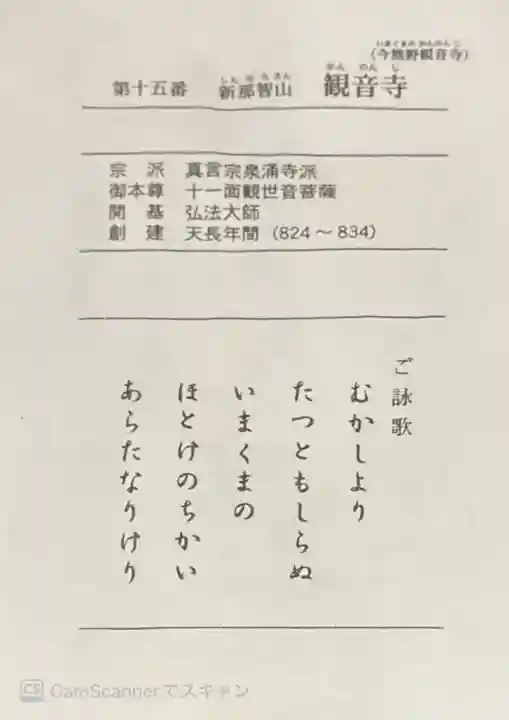 いまぐまのかんのんじ
（今熊野観音寺）
しんなちさん
かんのんじ
第十五番 新那智山 観音寺
宗派 真言宗泉涌寺派
御本尊 十一面観世音菩薩
開基 弘法大師
創建 天長年間（824～834）
ご詠歌
むかしより
たつともしらぬ
いまくまの
ほとけのちかい
あらたなりけり
CS CamScannerでスキャン